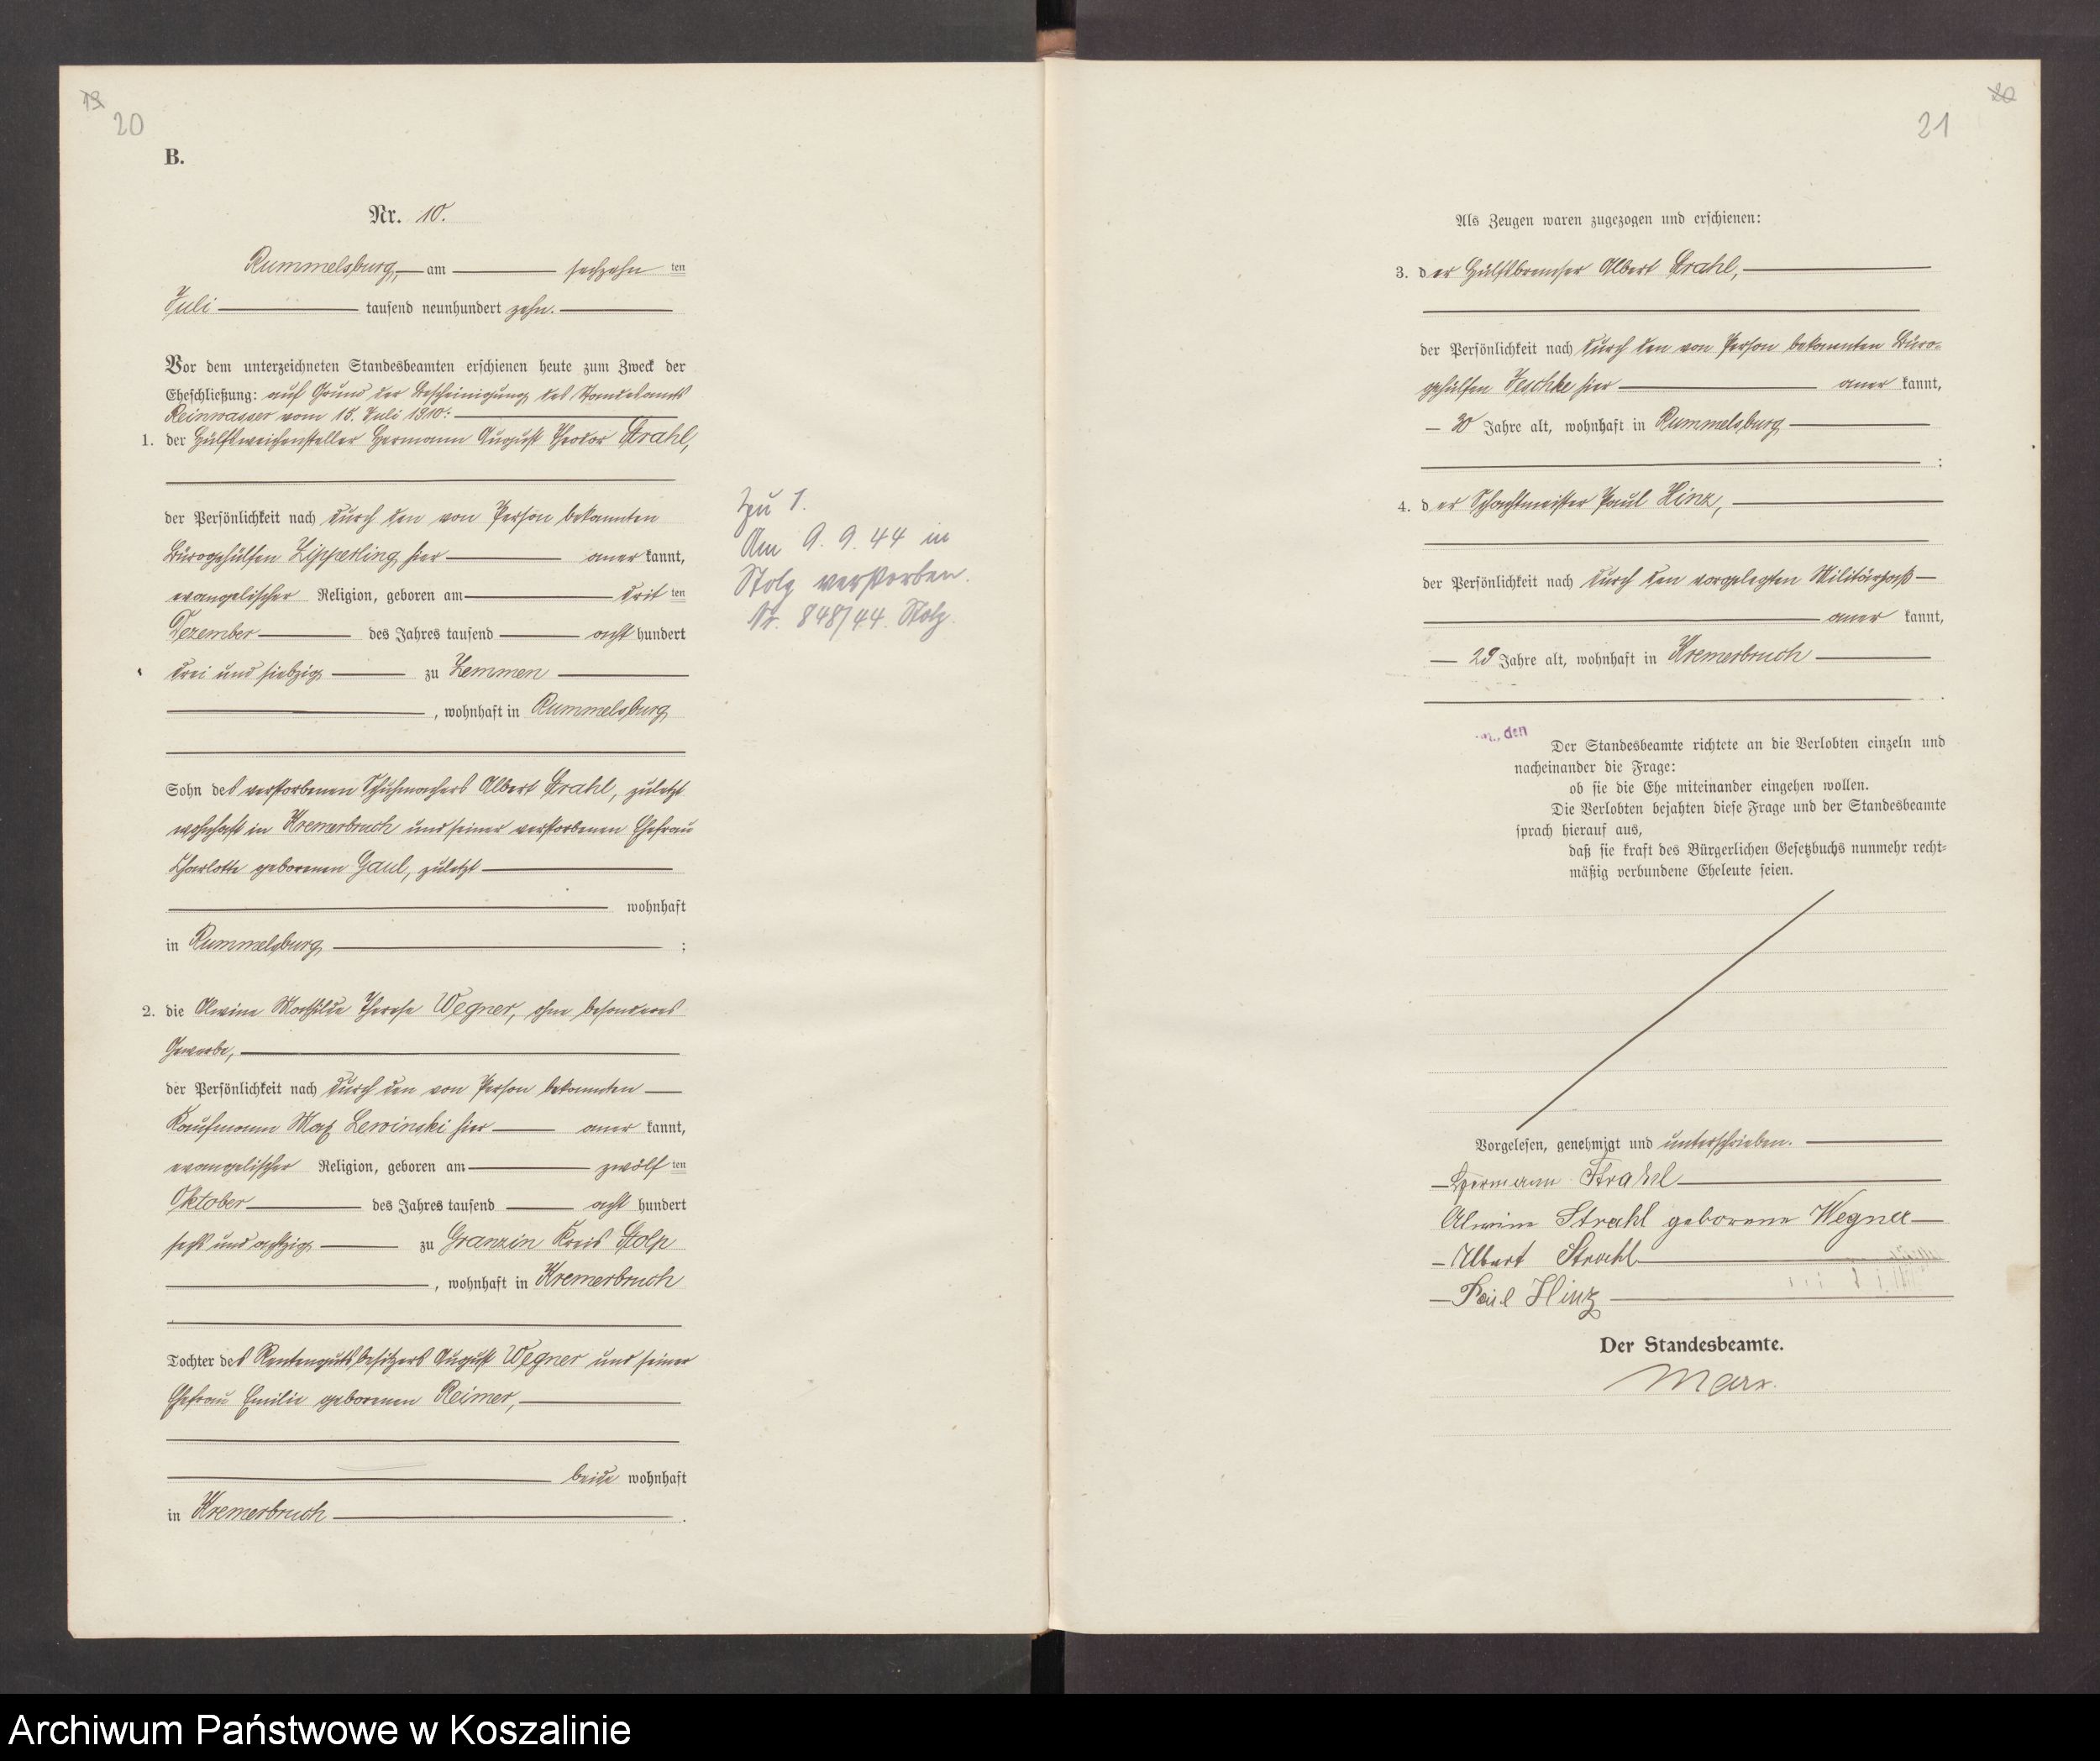 19
20
B.
Nr. 10.
Rummelsburg, am sechzehn ten
Juli tausend neunhundert zehn.
Vor dem unterzeichneten Standesbeamten erschienen heute zum Zweck der
Eheschließung: auf Grund der Bescheinigung des Standesamts
Reinwasser vom 15. Juli 1910:
1. der Hülfsweichensteller Hermann August Theodor Strahl,
der Persönlichkeit nach durch den von Person bekannten
Bürogehülfen Lipperling hier anerkannt,
evangelischer Religion, geboren am dritten
Dezember des Jahres tausend acht hundert
drei und siebzig zu Zemmen
, wohnhaft in Rummelsburg
Sohn des verstorbenen Schuhmachers Albert Strahl, zuletzt
wohnhaft in Kremerbruch und seiner verstorbenen Ehefrau
Charlotte geborenen Gaul, zuletzt
wohnhaft
in Rummelsburg ;
2. die Alwine Mathilde Therese Wegner, ohne besonderes
Gewerbe,
der Persönlichkeit nach durch den von Person bekannten
Kaufmann Max Lewinski hier anerkannt,
evangelischer Religion, geboren am zwölf ten
Oktober des Jahres tausend acht hundert
sechs und achtzig zu Granzin Kreis Stolp
, wohnhaft in Kremerbruch
Tochter des Rentengutsbesitzers August Wegner und seiner
Ehefrau Emilie geborenen Reimer,
beide wohnhaft
in Kremerbruch .
Zu 1.
Am 9. 9. 44 in
Stolp verstorben.
Nr. 848/44 Stolp.
20
21
Als Zeugen waren zugezogen und erschienen:
3. der Hülfsbremser Albert Strahl,
der Persönlichkeit nach durch den von Person bekannten Büro-
gehülfen Jeschke hier anerkannt,
30 Jahre alt, wohnhaft in Rummelsburg
;
4. der Schachtmeister Paul Hinz,
der Persönlichkeit nach durch den vorgelegten Militärpaß
anerkannt,
29 Jahre alt, wohnhaft in Kremerbruch
.
den
Der Standesbeamte richtete an die Verlobten einzeln und
nacheinander die Frage:
ob sie die Ehe miteinander eingehen wollen.
Die Verlobten bejahten diese Frage und der Standesbeamte
sprach hierauf aus,
daß sie kraft des Bürgerlichen Gesetzbuchs nunmehr recht-
mäßig verbundene Eheleute seien.
Vorgelesen, genehmigt und unterschrieben.
Hermann Strahl
Alwine Strahl geborene Wegner
Albert Strahl
Paul Hinz
Der Standesbeamte.
Marx.
Archiwum Państwowe w Koszalinie